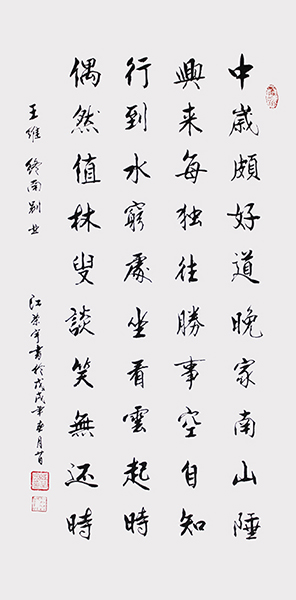 中歲頗好道晚家南山陲
興来每独往勝事空自知
行到水窮處坐看雲起時
偶然值林叟談笑無还時
王維 終南别业
江荣宇書於戊戌年春月